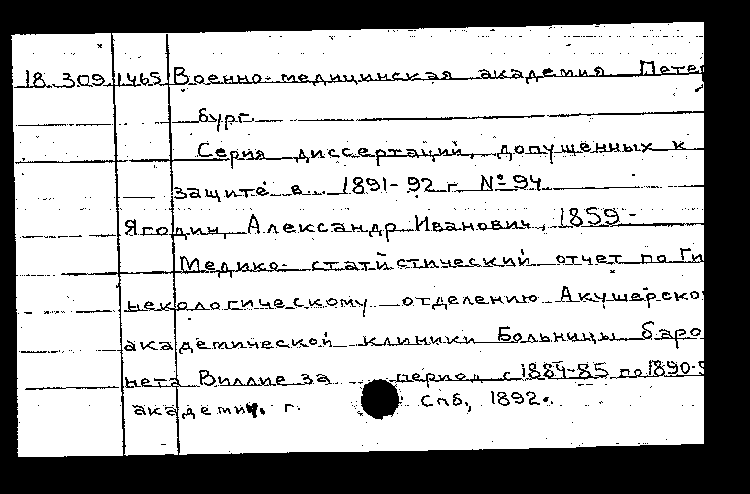 18.309 1465 Военно-медицинская академия. Петер
бург.
Серия диссертаций, допущенных к
защите в 1891-92 г. № 94
Ягодин, Александр Иванович, 1859-
Медико-статистический отчет по Ги
некологическому отделению Акушерско
академической клиники Больницы баро
нета Виллие за период с 1884-85 по 1890-9
академич. г. Спб, 1892.